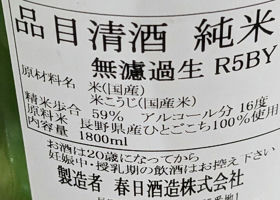 品目清酒 純米
無濾過生 R5BY
原材料名 米(国産)
米こうじ(国産米)
精米歩合 59% アルコール分 16度
原料米 長野県産ひとごこち100%使用
内容量 1800ml
お酒は20歳になってから
妊娠中・授乳期の飲酒はお控え下さい
製造者 春日酒造株式会社